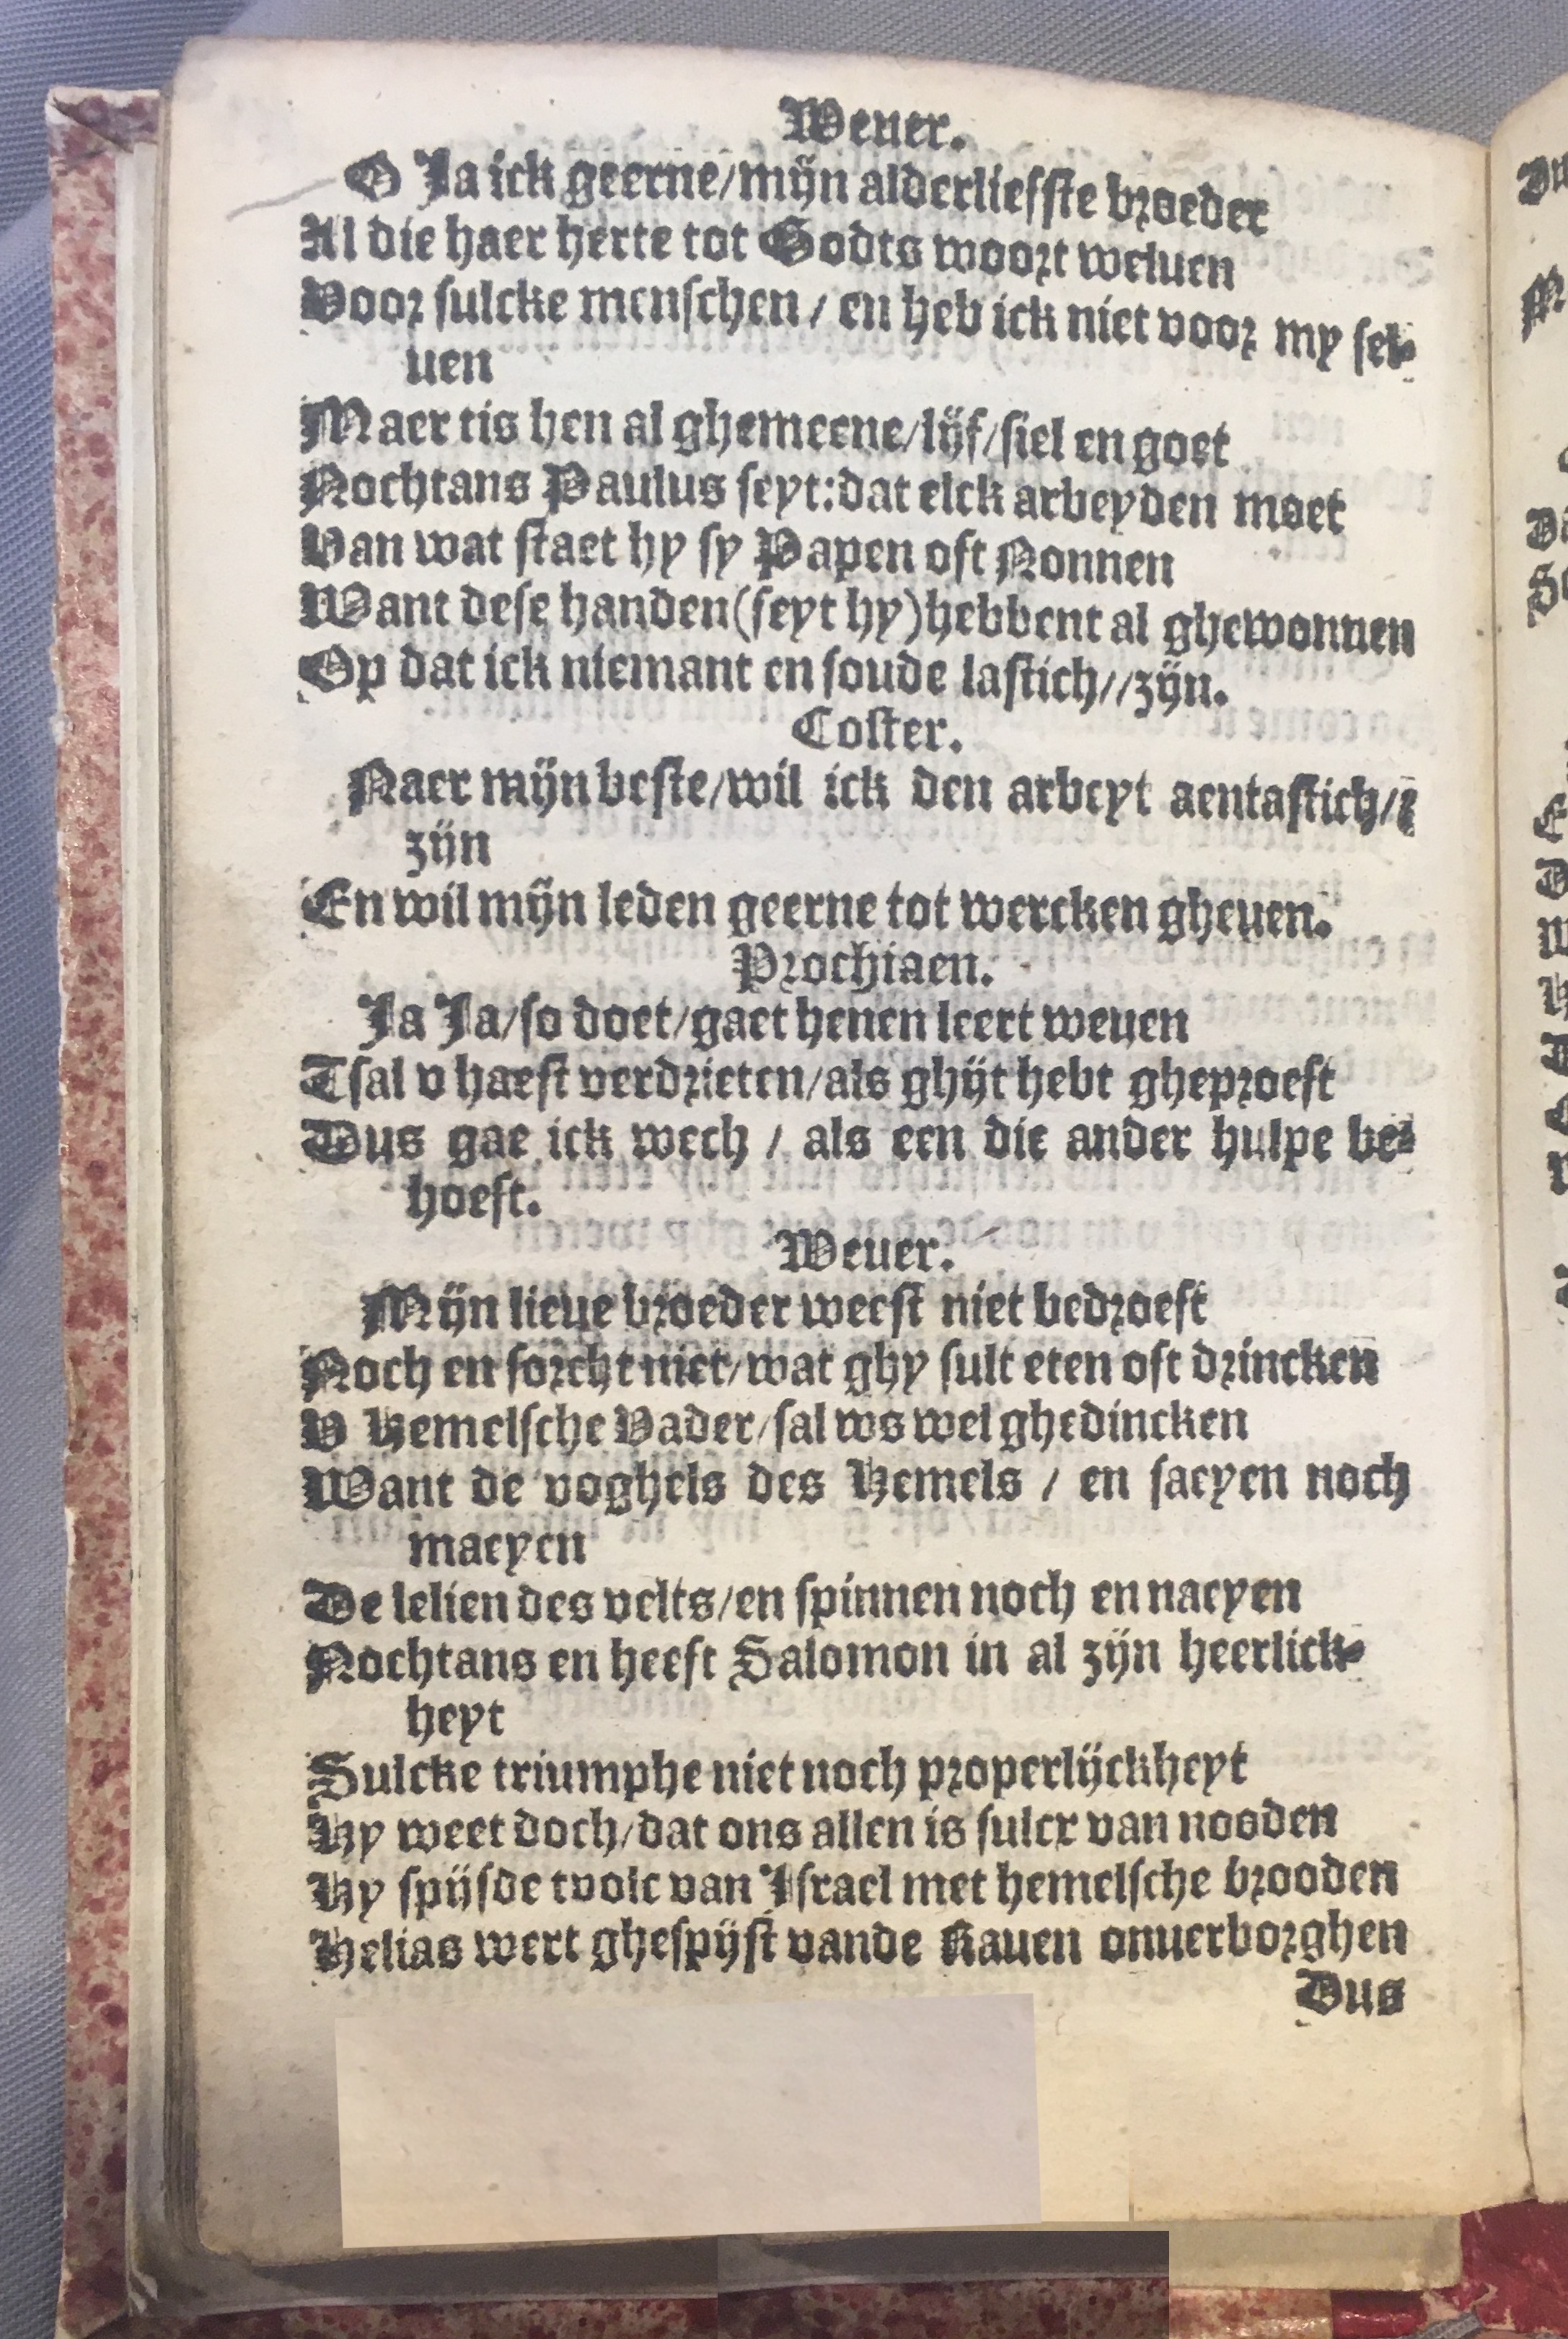 Weuer.
O Ja ick geerne/mijn alderliefste broeder
Al die haer herte tot Godts woort weluen
Voor sulcke menschen / en heb ick niet voor my sel-
uen
Maer tis hen al ghemeene/lijf/siel en goet
Nochtans Paulus seyt:dat elck arbeyden moet
Van wat staet hy sy Papen oft Nonnen
Want dese handen(seyt hy)hebbent al ghewonnen
Op dat ick niemant en soude lastich//zijn.
Coster.
Naer mijn beste/wil ick den arbeyt aentastich//
zijn
En wil mijn leden geerne tot wercken gheuen.
Prochiaen.
Ja Ja/so doet/gaet henen leert weuen
Tsal v haest verdrieten/als ghijt hebt gheproeft
Dus gae ick wech / als een die ander hulpe be-
hoeft.
Weuer.
Mijn lieue broeder weest niet bedroeft
Noch en sorcht niet/wat ghy sult eten oft drincken
V Hemelsche Vader/sal ws wel ghedincken
Want de voghels des Hemels / en saeyen noch
maeyen
De lelien des velts/en spinnen noch en naeyen
Nochtans en heeft Salomon in al zijn heerlick-
heyt
Sulcke triumphe niet noch properlijckheyt
Hy weet doch/dat ons allen is sulcx van nooden
Hy spijsde tvolc van Israel met hemelsche brooden
Helias wert ghespijst vande Rauen onuerborghen
Dus